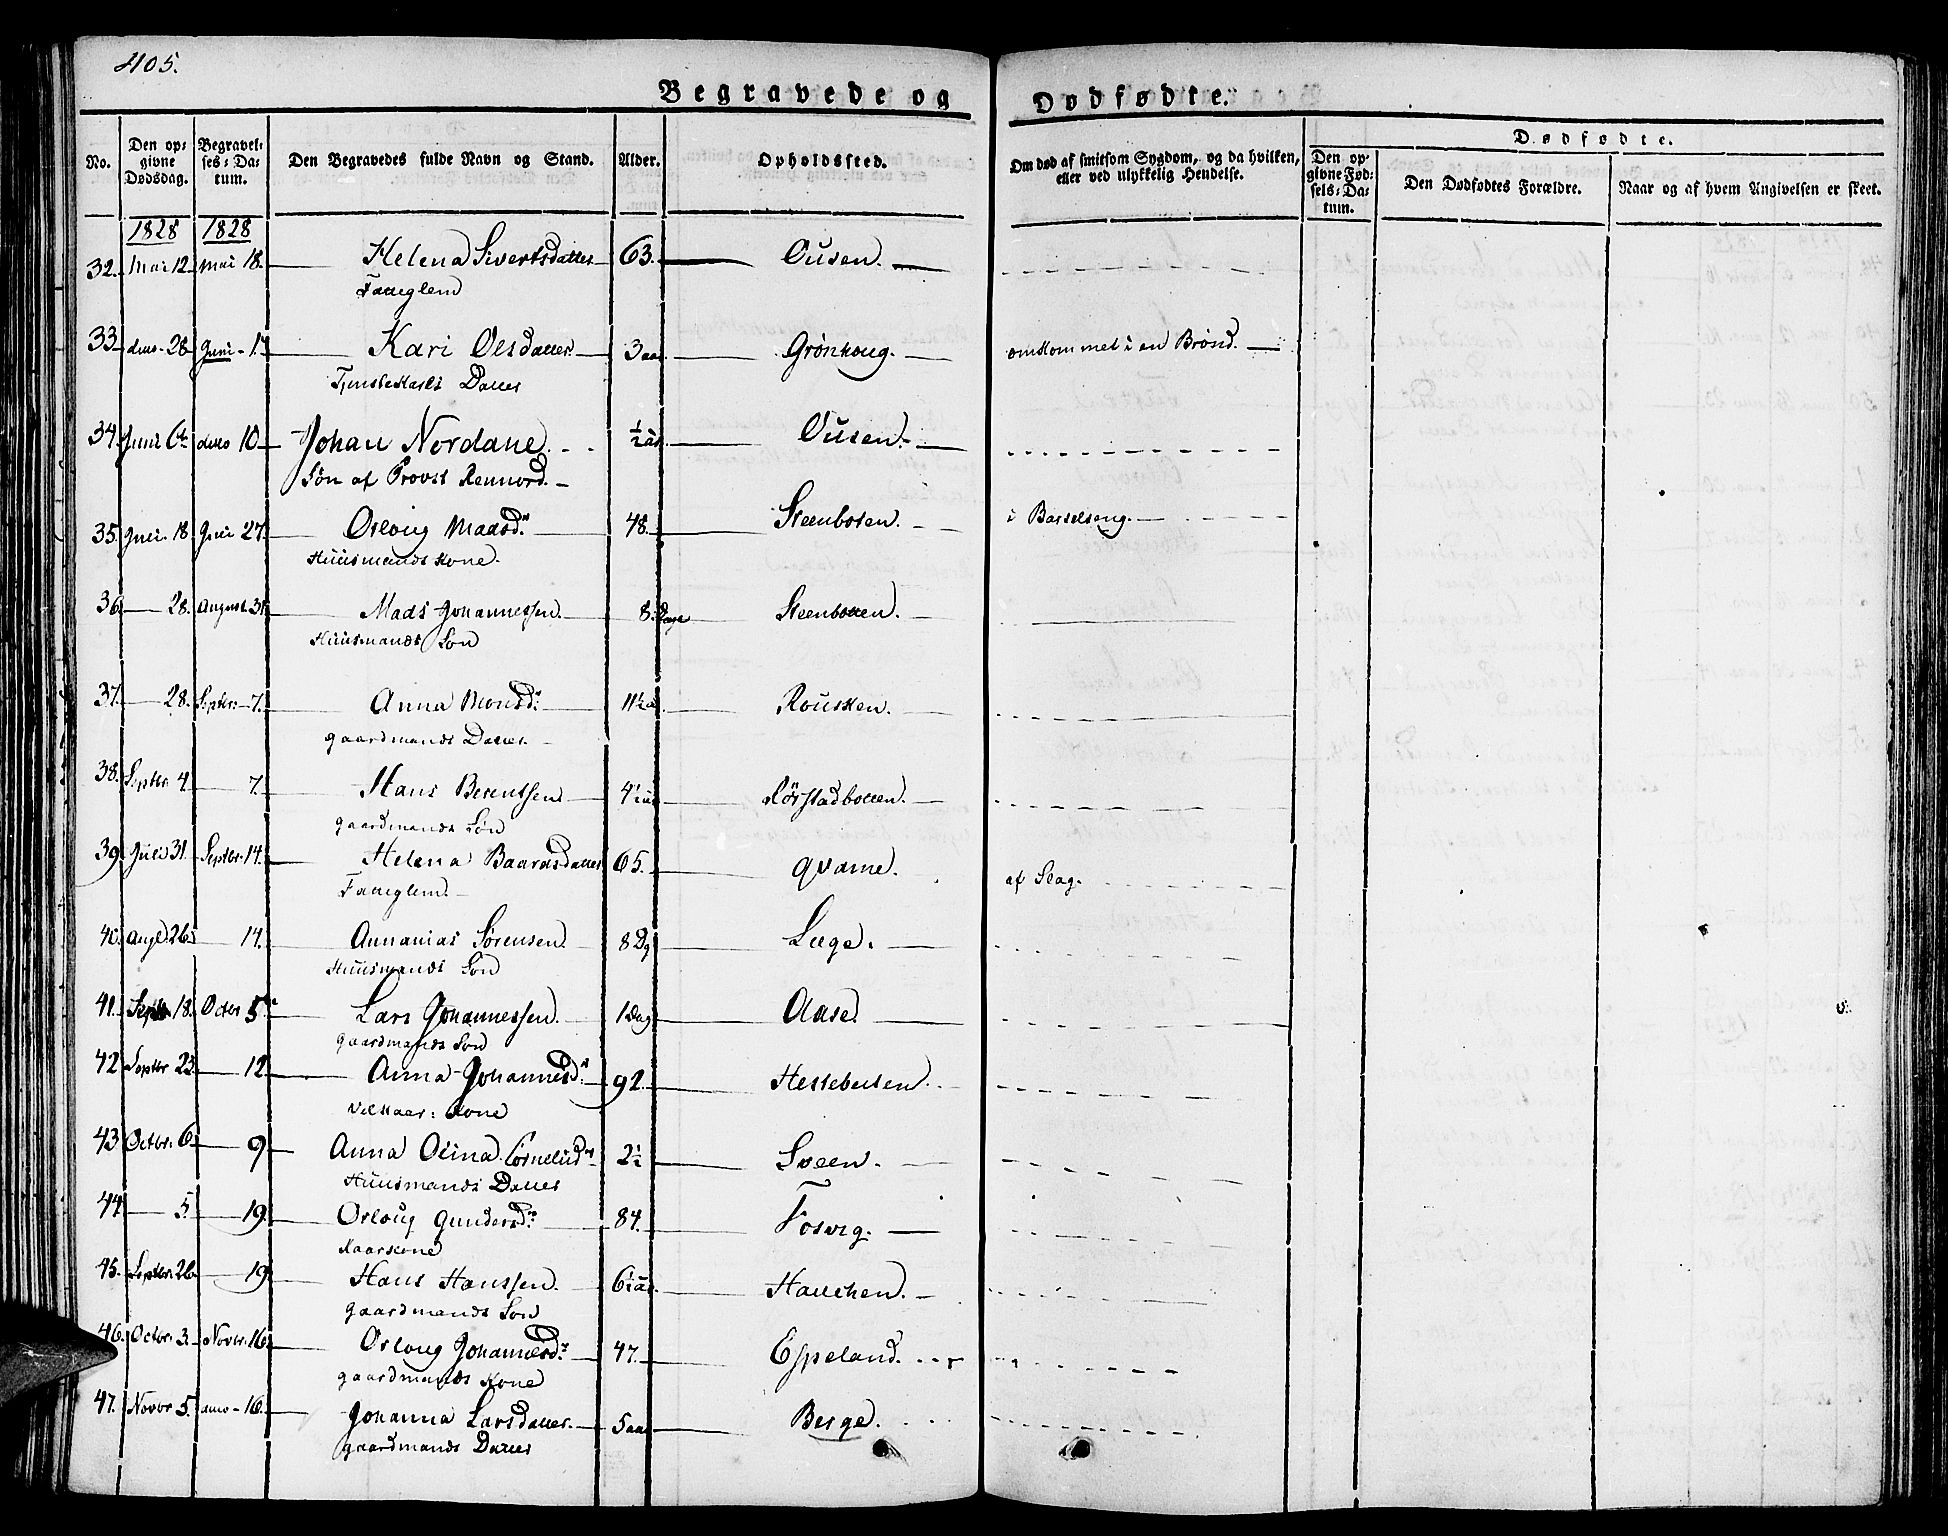 405.
Begravede og Dødfødte.
No.
Den opgivne Dødsdag.
Begravelses-Datum.
Den Begravedes fulde Navn og Stand.
Alder.
Opholdssted.
Om død af smitsom Sygdom, og da hvilken, eller ved ulykkelig Hendelse.
Dødfødte.
Den opgivne Fødsels-Datum.
Den Dødfødtes Forældre.
Naar og af hvem Angivelsen er skeet.
1828 1828
32. Mai 12. Mai 18. Helena Sivertsdatter 63. Ousen.
33. 28. Juni 1. Kari Olsdatter 3 aar Grønhoug. omkommet i en Brønd.
Tjenstekarls Datter
34. Juni 6te 10 Johan Nordahl ½ aar Ousen.
Søn af Provst Rennord.
35. Juni 18 Juni 27. Osloug Madsd. 48. Steenboten. i Barselseng.
Huusmands Kone.
36. 28. August 31. Mads Johannessen. 8 Dage Steenbotten.
Huusmands Søn
37. 28. Septbr. 7. Anna Monsd. 11½ a Rousken.
gaardmands Datter.
38. Septbr 4 7. Hans Berentsen 4½ aar Rørstadbotten.
gaardmands Søn
39. Juli 31. Septbr. 14. Helena Baardsdatter 65. Qvame. af Slag.
40. Aug 26 14. Annanias Sørensen. 8 Dg Læge.
Huusmands Søn
41. Septb 18. Octbr 5 Lars Johannessen. 1 Dag Aase.
gaardmands Søn
42 Septbr 23 12 Anna Johannesd. 92.
Kone
43 Octbr. 6 9 Anna Olina Cornelius d. 2½ Sveen.
Huusmands Datter
44 5. 19. Osloug Gundersd. 84. Fosvig.
45. Septbr. 26 19. Hans Hanssen. 6½ aar
gaardmands Søn
46. Octbr. 3. Novbr. 16 Osloug Johannesd. 47. Espeland.
gaardmands Kone
47. Novbr 5. 16. Johanna Larsdatter. 5 aar Berge.
gaardmands Datter